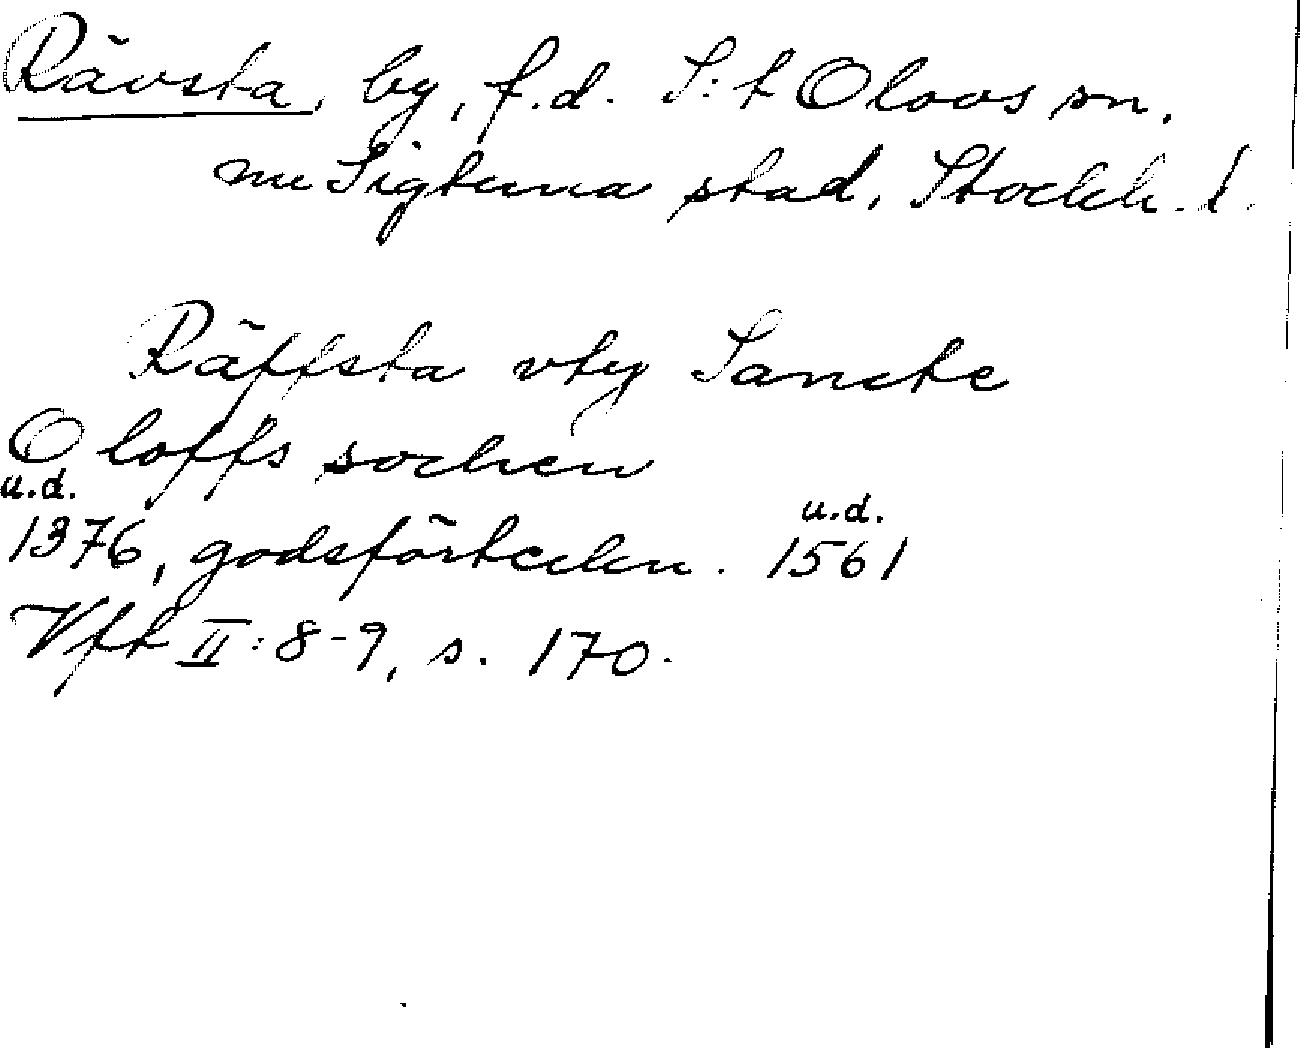 Rävsta, by, f.d. S:t Olovs sn,
nu Sigtuna stad, Stockh. l.
Räffsta vtij Sancte
Oloffs sochen
u.d. u.d.
1376, godsförteckn. 1561
Vft II:8-9, s. 170.